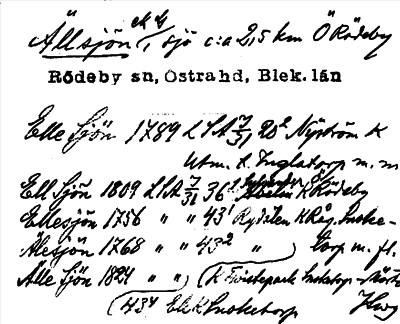 Ällsjön, sjö c:a 2,5 km Ö Rödeby
Rödeby sn, Östra hd, Blek. län
Elle Sjön 1789 LSA 7/31 20² Nyström K
Utm. t. Inglatorp m. m
Ell Sjön 1809 LSA 7/31 36² K Rödeby
Ellesjön 1756 " " 43¹ Rydelen K Råg. Inske-
Älesjön 1768 " " 43² " torp m. fl.
Älle Sjön 1824 " " (K
(43⁴ Ek K Insketorp